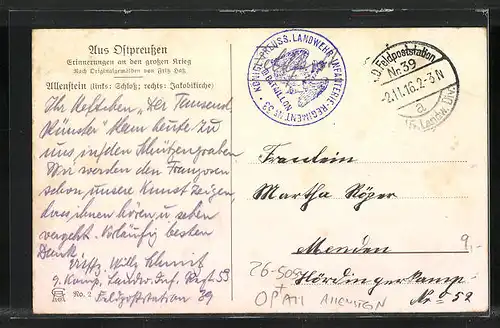 Aus Ostpreußen
Erinnerungen an den großen Krieg
Nach Originalgemälden von Fritz Haß
Allenstein (links: Schloß; rechts: Jakobikirche)
"Der Tausend
Künster" kam heute zu
uns in den Schützengraben
Wir werden den Franzosen
schon unsere Kunst zeigen,
dass ihnen hören u. sehen
vergeht. Vorläufig besten
Dank.
Uffz. Willy Schmit
9. Komp. Landw. Inf. Regt 53
No. 2 Feldpoststation 39
KÖNIGL. PREUSS. LANDWEHR INFANTERIE-REGIMENT No. 53
K.D. Feldpoststation
Nr. 39
-2.11.16. 2-3 N
a
Landw. Div.
Fräulein
Martha Röper
Menden
Nr 52
9,-
26-508
OP All ALLENSTEIN